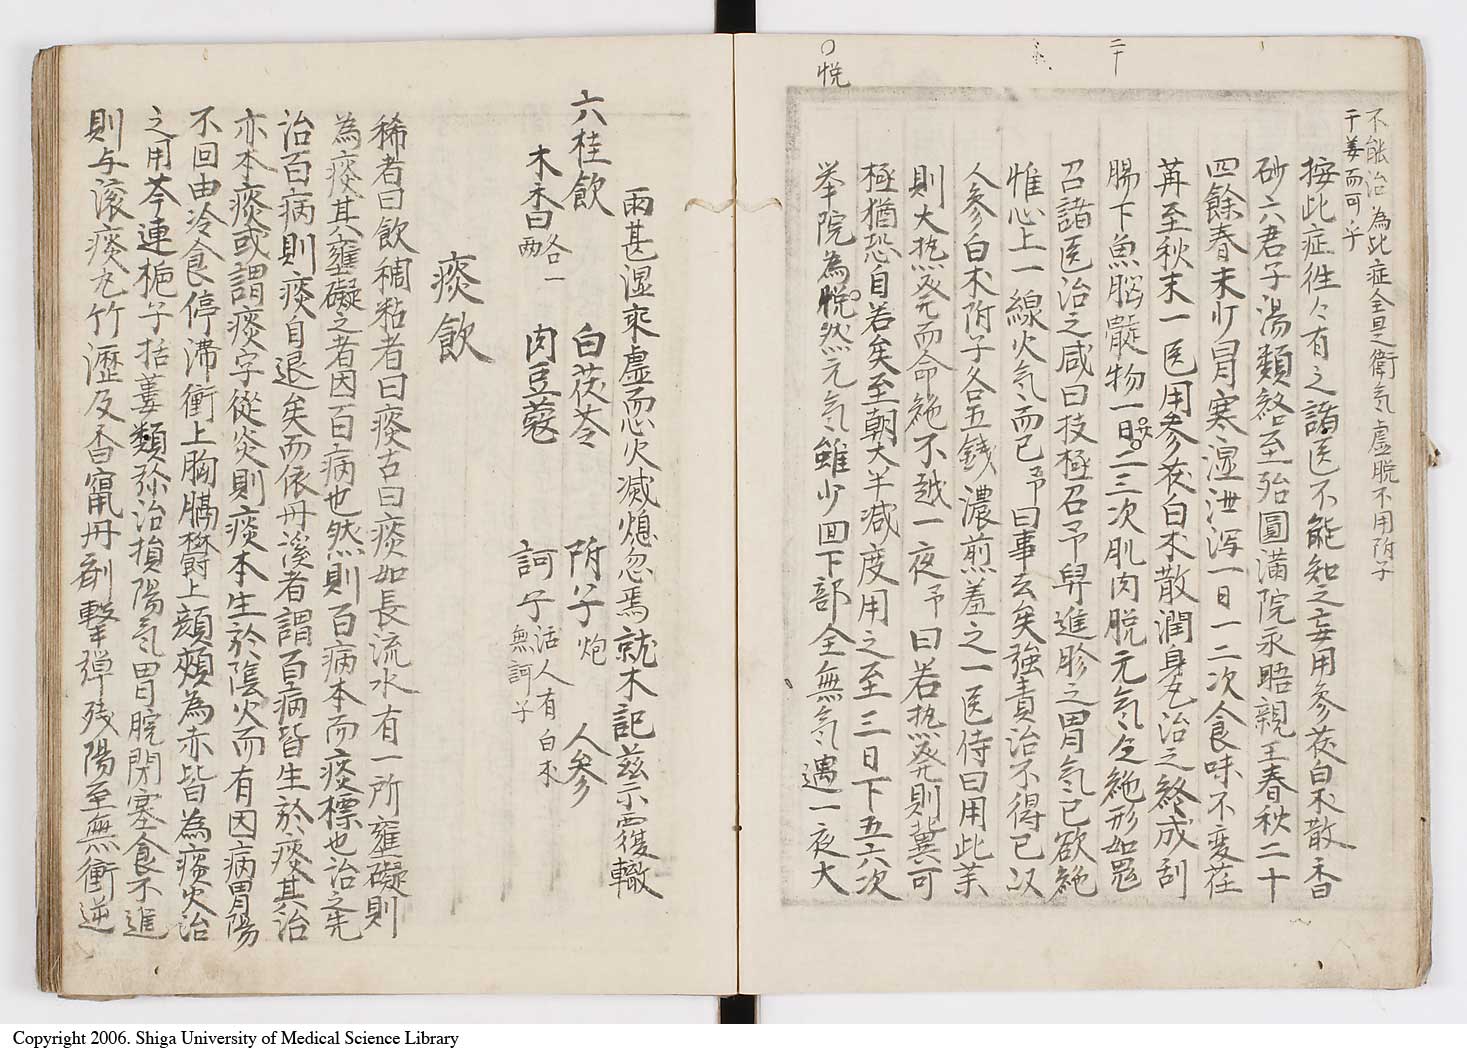 不能治為此症全是衛気虚脱不用附子
干姜而可乎
按此症徃々有之諸医不能知之妄用参茯白朮散香
砂六君子湯類終至殆圓満院永晤親王春秋二十
四餘春末少冒寒湿泄泻一日一二次食味不変荏
苒至秋末一医用参茯白朮散潤身丸治之終成刮
腸下魚脳凝物一日二三次肌肉脱元気乏絶形如鬼
召諸医治之咸曰技極召予舁進胗之胃気已欲絶
惟心上一線火気而已予曰事去矣強責治不得已以
人参白朮附子各五銭濃煎羞之一医侍曰用此薬
則大熱発而命絶不越一夜予曰若熱発則冀可
極猶恐自若矣至朝大半減度用之至三日下五六次
挙院為悦然元気雖少回下部全無気遇一夜大
〇悦
二十
雨甚湿乗虚而心火滅熄忽焉就木記茲示覆轍
六桂飲 白茯苓 附子炮 人参
木香各一両 肉豆蔲 訶子活人有白朮無訶子
痰飲
稀者曰飲稠粘者曰痰古曰痰如長流水有一所壅礙則
為痰其壅礙之者因百病也然則百病本而痰標也治之先
治百病則痰自退矣而依丹溪者謂百病皆生於痰其治
亦本痰或謂痰字從炎則痰本生於陰火而有因病胃陽
不回由冷食停滞衝上胸膈欝上顔頰為赤皆為痰火治
之用芩連梔子括蔞類弥治損陽気胃脘閉塞食不進
則与滚痰丸竹瀝及香甯丹剤撃弾残陽至無衝逆
Copyright 2006. Shiga University of Medical Science Library